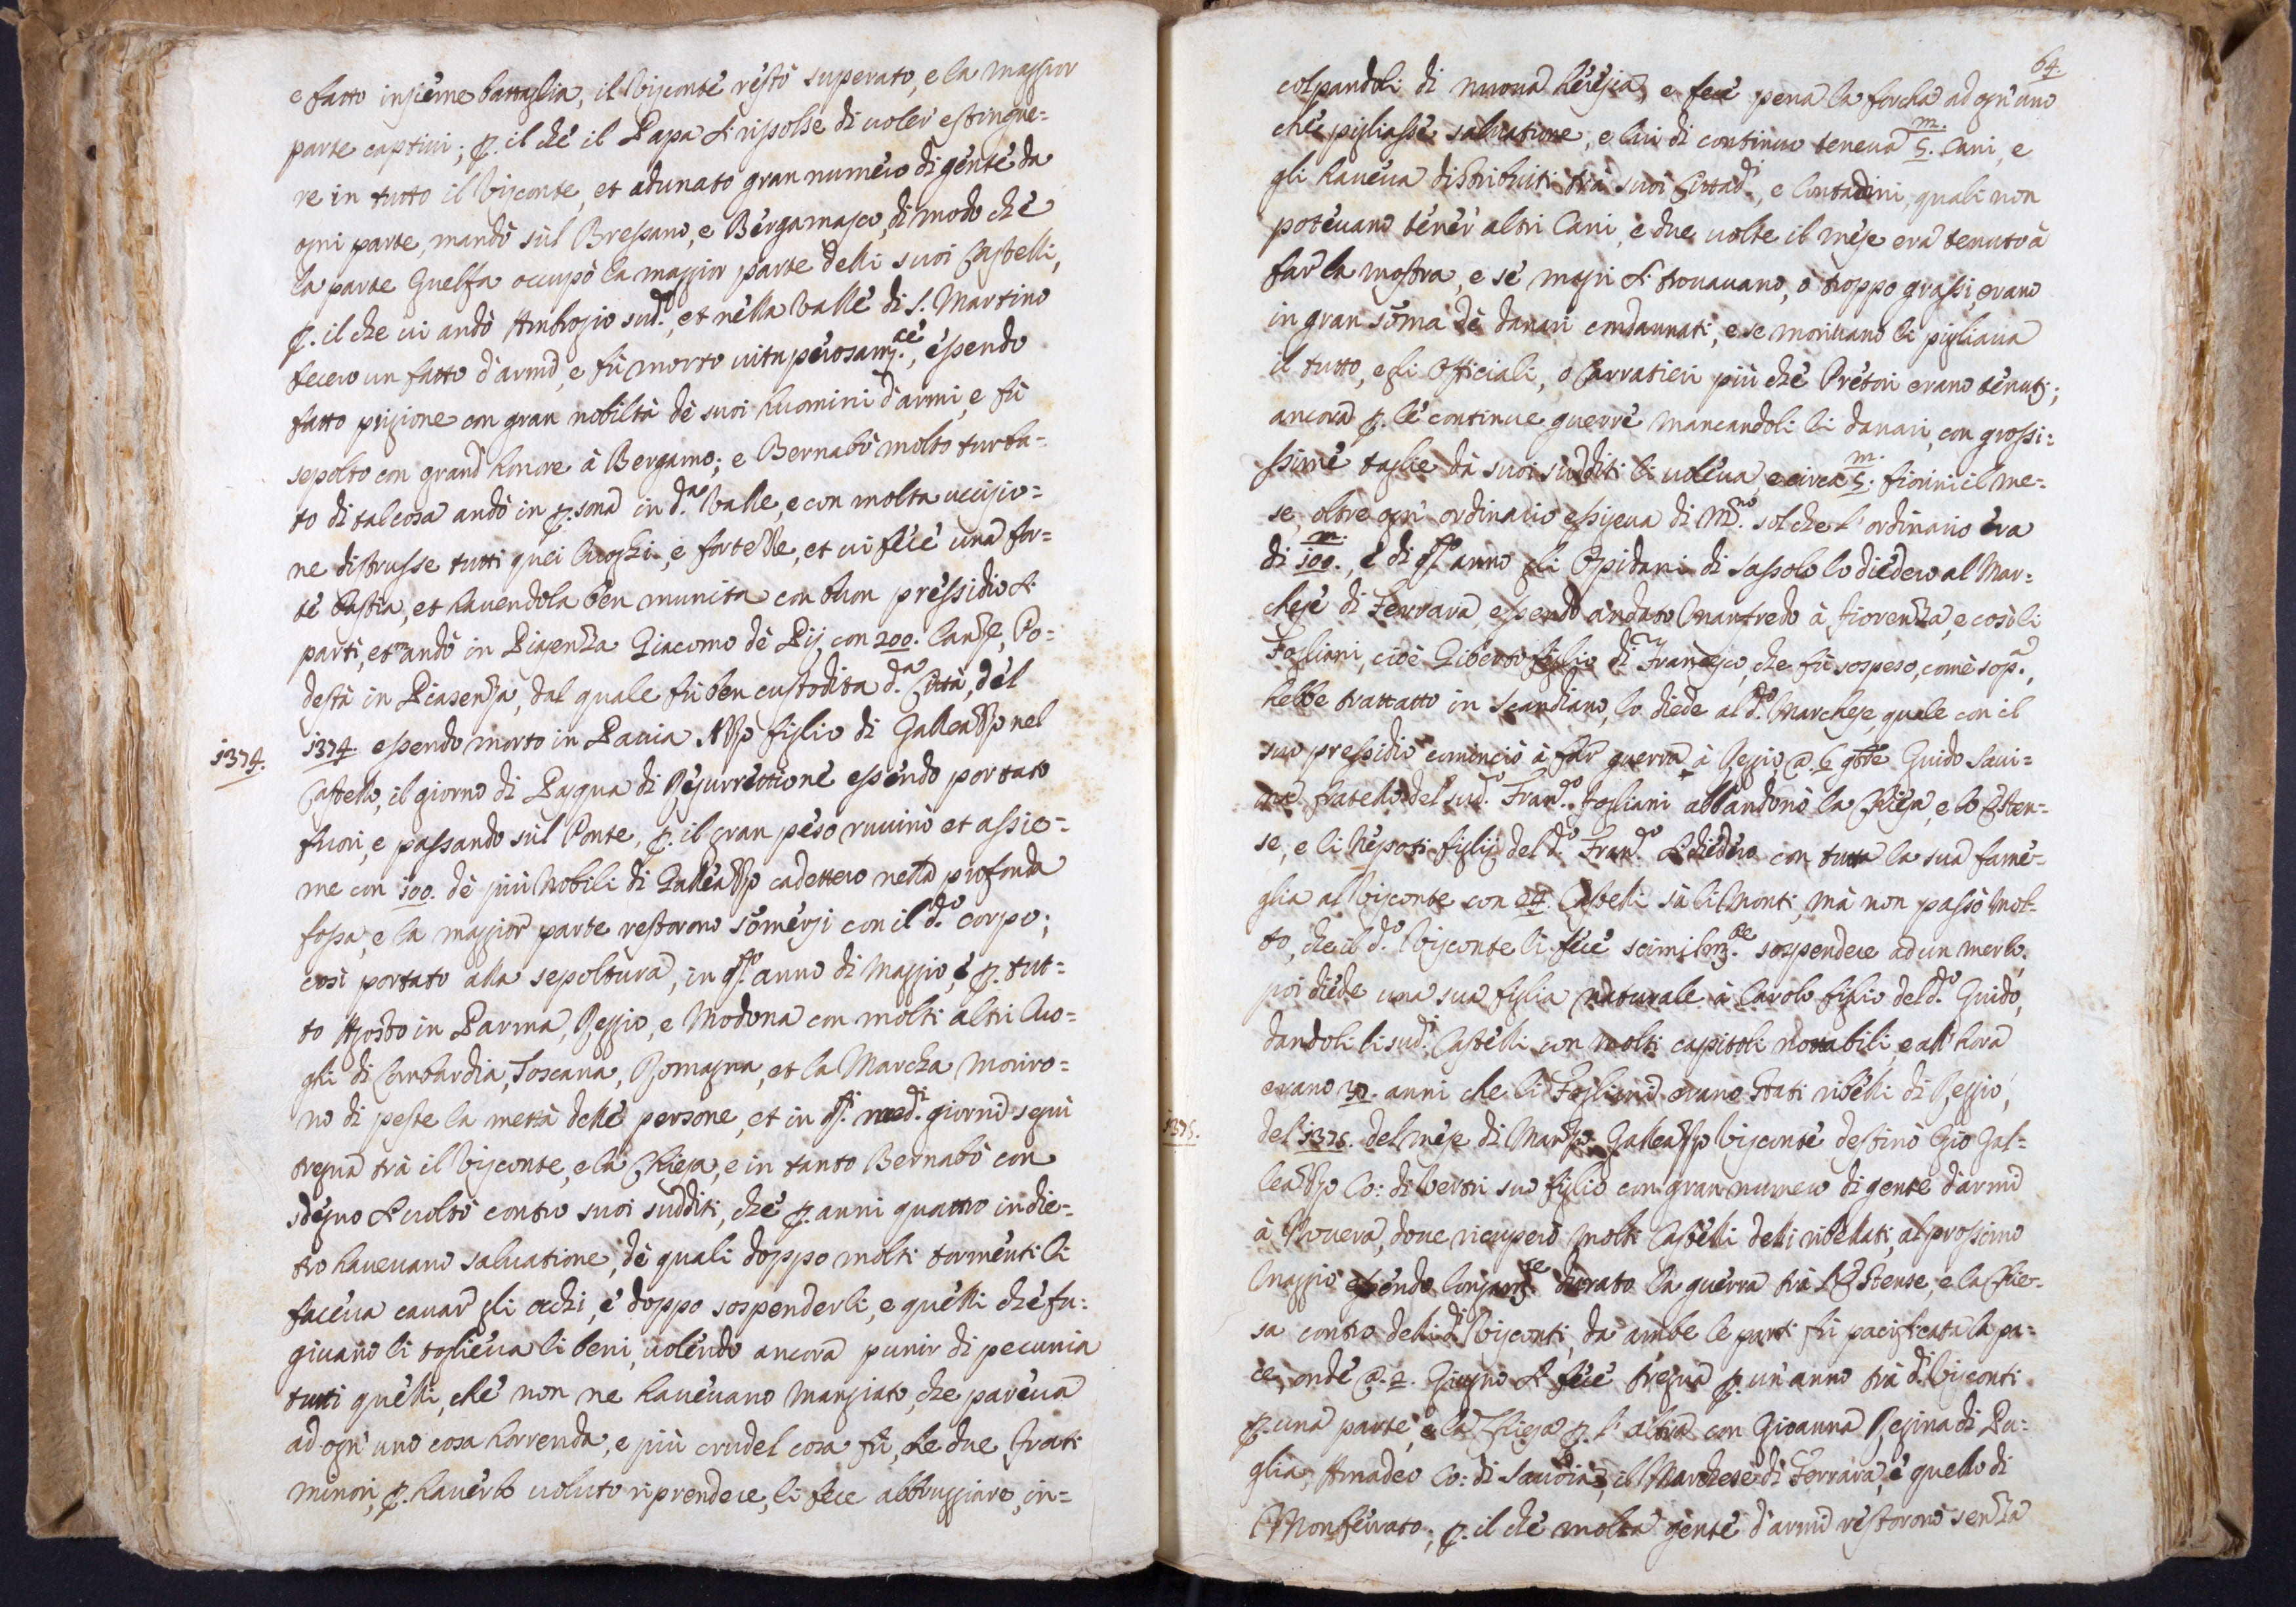 e fatto insieme battaglia, il Visconte restò superato, e la maggior
parte captivi; p. il che il Papa si rispolse di voler estingue=
re in tutto il Visconte, et adunato gran numero di gente da
ogni parte, mandò sùl Bressano, e Bergamasco, di modo che
la parte Guelfa occupò la maggior parte delli suoi Castelli,
p. il che vi andò Ambrogio sud.º, et nella Valle di S. Martino
fecero un fatto d'armi, e fù morto vituperosam.te, essendo
fatto prigione con gran nobiltà dè suoi huomini d'armi, e fù
sepolto con grand honore à Bergamo; e Bernabò molto turba=
to di tal cosa andò in p.sona in d.ª Valle, e con molta uccisio=
ne distrusse tutti quei luoghi, e fortezze, et vi fece una for=
te bastia, et havendola ben munita con buon pressidio si
partì, et mandò in Piasenza Giacomo dè Pij, con 200. lanze, Po=
destà in Piasenza, dal quale fù ben custodita d.ª Città, del
1374.
1374. essendo morto in Pavia Azzo figlio di Galleazzo nel
Castello, il giorno di Pasqua di Resurrettione essendo portato
fuori, e passando sùl Ponte, p. il gran peso ruvinò et assie=
me con 100. dè più Nobili di Galleazzo cadettero nella profonda
fossa, e la maggior parte restorono somersi con il d.º corpo;
così portato alla sepoltura, in q.sto anno di Maggio, è p. tut=
to Agosto in Parma, Reggio, e Modona con molti altri luo=
ghi di Lombardia, Toscana, Romagna, et la Marcha moriro=
no di peste la mettà delle persone, et in q.sti med.i giorni seguì
tregua trà il Visconte, e la Chiesa, e in tanto Bernabò con
sdegno si voltò contro suoi sudditi, che p. anni quattro indie=
tro havevano salvatione, dè quali doppo molti tormenti li
faceva cavar gli occhi, è doppo sospenderli, e quelli che fu=
givano li toglieva li beni, volendo ancora punir di pecunia
tutti quelli, che non ne havevano mangiato, che pareva
ad ogn' uno cosa horrenda, e più crudel cosa fù, che due Frati
minori, p. haverlo voluto riprendere, li fece abbruggiare, in=
64.
colpandoli di nuova heresia, e fece pena la forcha ad ogn' uno
che pigliasse salvatione, e lui di continuo teneva 5.m Cani, e
gli haveva distribuiti trà suoi Cittad.i, e Contadini, quali non
potevano tener altri Cani, e due volte il mese era tenuto à
far la mostra, e se magri si trovavano, ò troppo grassi, erano
in gran soma dè danari condannati, e se morivano li pigliava
il tutto, e gli Officiali, ò Carratieri più che Pretori erano tenuti;
ancora p. le continue guerre mancandoli li danari, con grossi=
ssime taglie dà suoi sudditi li voleva, e circa 5.m fiorini il me=
se, oltre ogn' ordinario essigeva di M.no sol che l'ordinario era
di 100.m, è di q.sto anno gli Opidani di Sassolo lo diedero al Mar=
chese di Ferrara, essendo andato Manfredo à Fiorenza, e così li
Fogliani, cioè Giberto figlio di Francesco, che fù sospeso, come sop.ª,
hebbe trattatto in Scandiano, lo diede al d.º Marchese, quale con il
suo pressidio cominciò à far guerra à Reggio, a 6 9bre Guido Savi=
na fratello del sud.º Fran.co Fogliani abbandonò la Chiesa, e lo Esten=
se, e li Nepoti figlij del d.º Fran.co si diedero con tutta la sua fame=
glia al Visconte con 24. Castelli sù li Monti, mà non passò mol=
to, che il d.º Visconte li fece scimilm.te sospendere ad un merlo,
poi diede una sua figlia naturale à Carolo figlio del d.º Guido,
dandoli li sud.i Castelli con molti capitoli nottabili, e all' hora
erano anni che li Fogliani erano stati ribelli di Reggio,
1375.
del 1375. del mese di Marzo Galleazzo Visconte destinò Gio Gal=
leazzo Co: di Vertù suo figlio con gran numero di gente d'armi
à Novera, dove ricuperò molti Castelli delli ribellati, al prossimo
Maggio essendo longam.te durato la guerra trà l'Estense, e la Chie=
sa contro delli d.i Visconti, da ambe le parti fù pacificata la pa=
ce, onde a 2. Giugno si fece tregua p. un' anno trà d.i Visconti
p. una parte, e la Chiesa p. l'altra con Gioanna Regina di Pu=
glia, Amadeo Co: di Savoia, il Marchese di Ferrara, è quello di
Monferrato, p. il che molta gente d'armi restorono senza